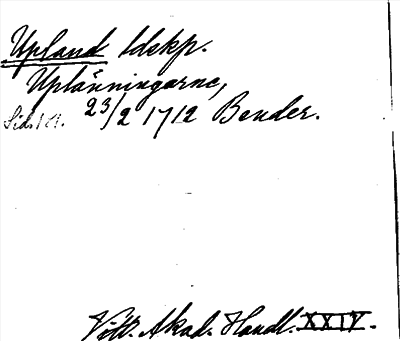 Upland ldskp.
Uplänningarne,
Sid. 181. 23/2 1712 Bender.
Vitt. Akad. Handl. XXIV.